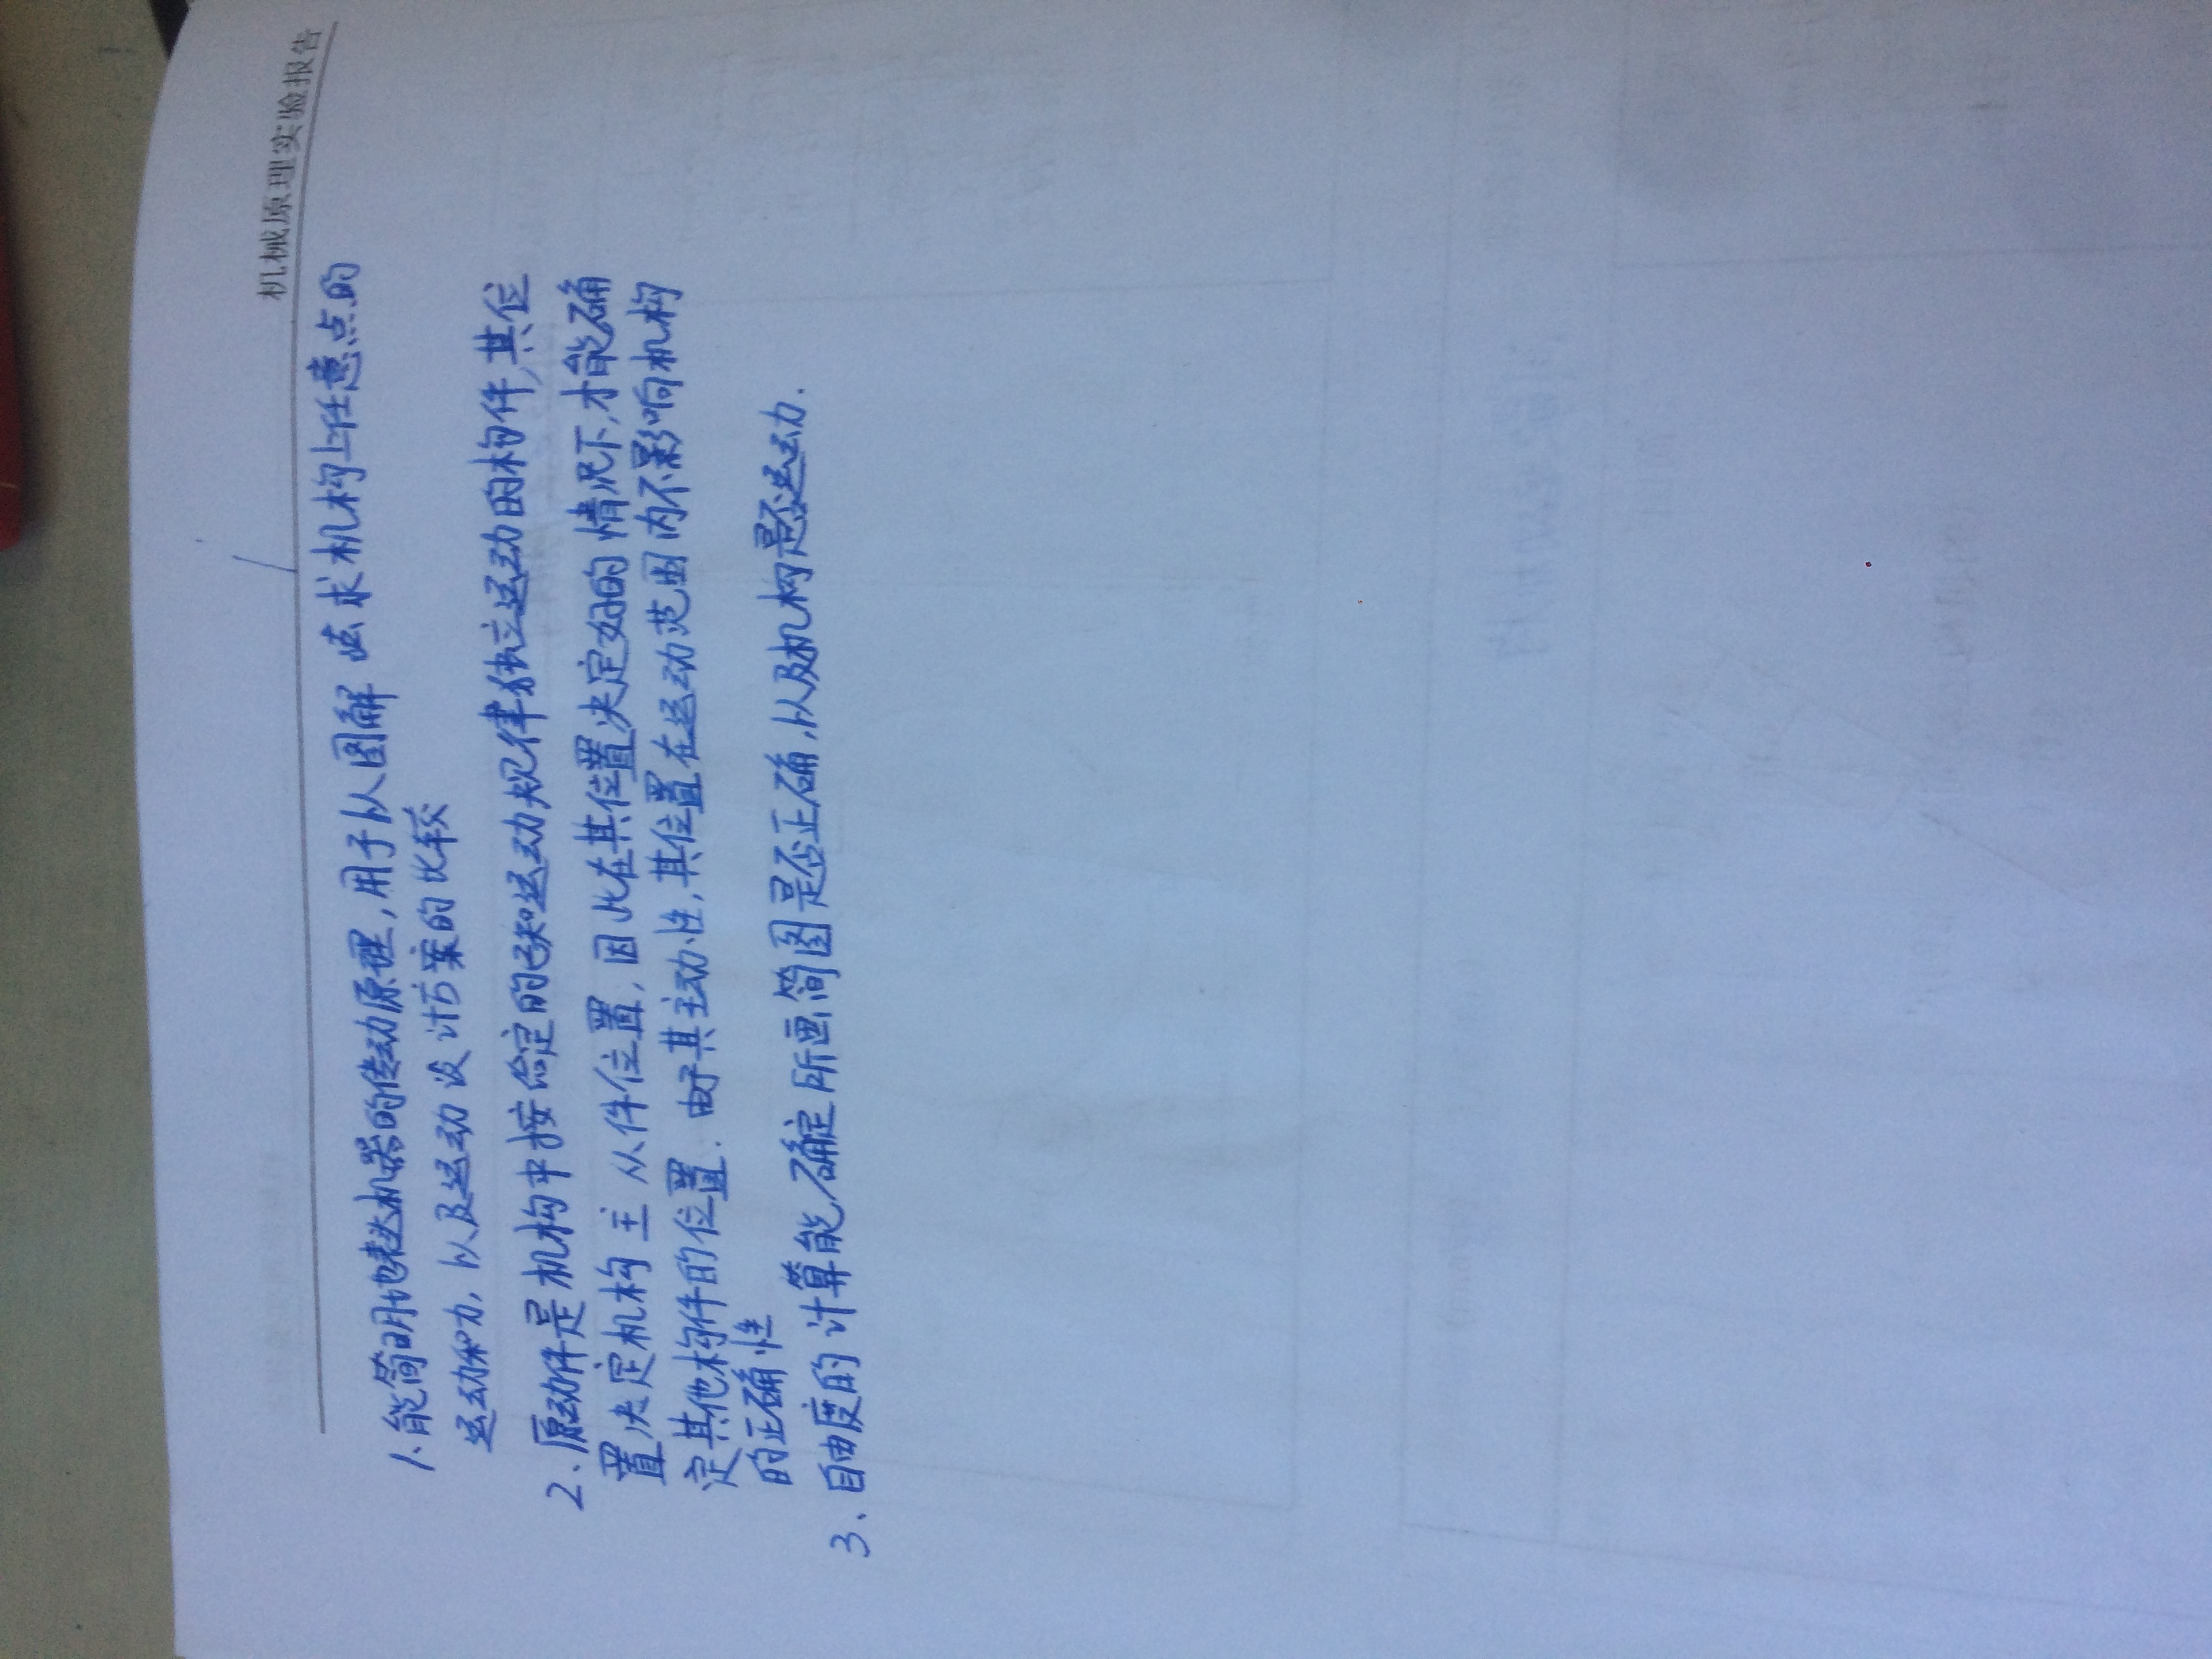 机械原理实验报告
1、能简明地表达机器的传动原理，用于以图解法求机构上任意点的
运动和力，以及运动设计方案的比较
2、原动件是机构中按给定的已知运动规律独立运动的构件，其位
置决定机构主从件位置，因此在其位置决定好的情况下，才能确
定其他构件的位置．由于其主动性，其位置在运动范围内不影响机构
的正确性
3、自由度的计算能确定所画简图是否正确，以及机构是否运动．